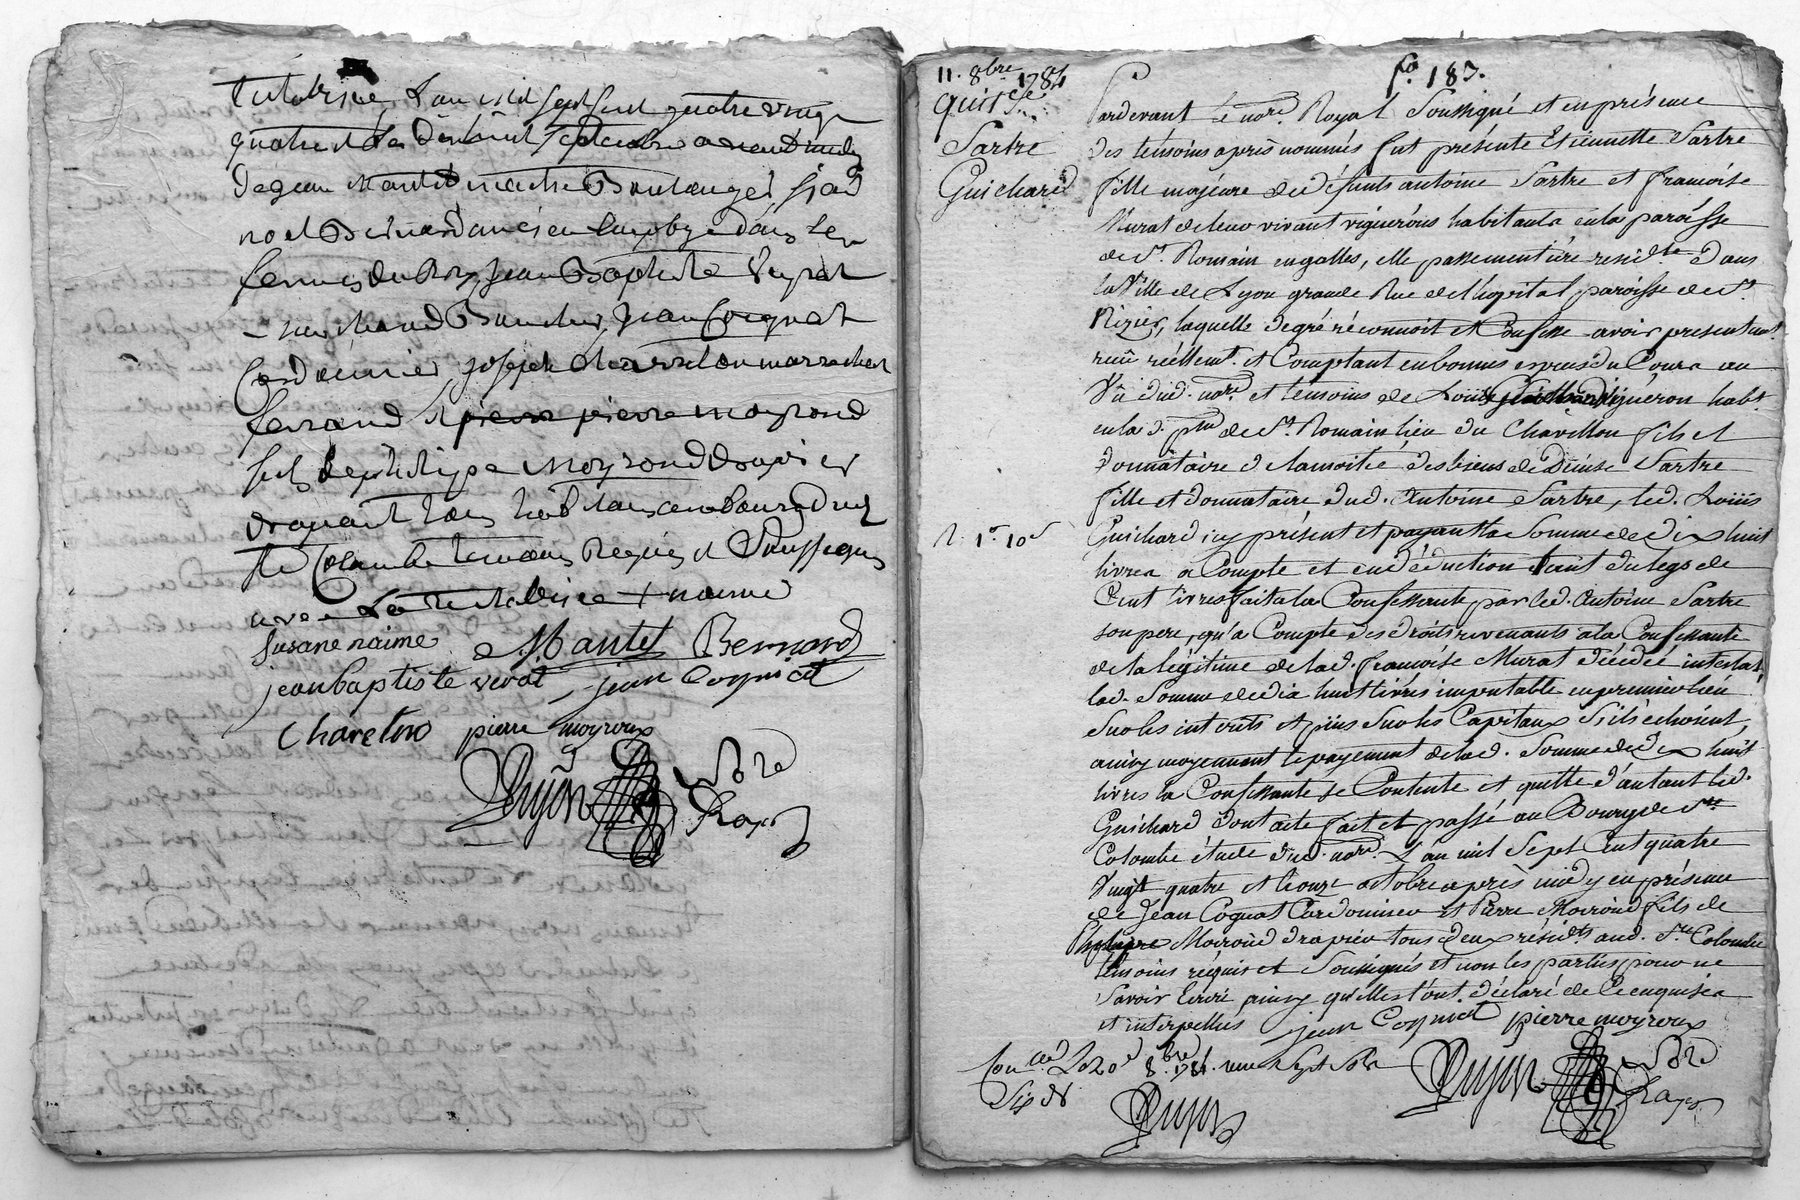 L'an mil sept cent quatre vingt
quatre et le dix huit septembre avant midy
de jean Mantel maitre Boulanger, sieur
noel Bernard ancien employé dans les
fermes du Roy, jean Baptiste Veyrat
marchand Boucher, jean Cocgnat
Cordonnier, joseph marechal
ferrand & pierre moyroud
fils de philippe moyroud drapier
drapant tous hab. dans ce bourg de
Ste Colombe temoins Requis et Soussignés
avec La
susane naime Mantel Bernard
jean baptiste verat jean Cogniat
Charetton pierre moyroux
Dujon nore
Royal
11. 8bre 1784
quitce
Sartre
Guichard
fo 183.
Pardevant le nore Royal Soussigné et en présence
des témoins après nommés fut présente Etiennette Sartre
fille majeure de défunts antoine Sartre et francoise
Murat de leur vivant vignerons habitants en la paroisse
de St. Romain en galles, elle passementière residte dans
la Ville de Lyon grande Rue de l'hopital, paroisse de St.
Nizier, laquelle de gré reconnoit et Confesse avoir presentemt.
reçu réellemt. et Comptant en bonnes especes du Cours au
Vû dud. nore et temoins de Louis Guichard Vigneron habt.
en la d. psse de St. Romain lieu du Chavillon fils et
donnataire de la moitié des biens de Denise Sartre
fille et donnataire dud. Antoine Sartre, led. Loüis
Guichard icy présent et payant la Somme de dix huit
R. 1# 10s
livres a Compte et en déduction tant du legs de
Cent livres fait a la Confessante par led. Antoine Sartre
son pere, qu'a Compte des droits revenants a la Confessante
de la légitime de lad. francoise Murat décédée intestat,
lad. Somme de dix huit livres imputable en premier lieu
Sur les interets et puis Sur les Capitaux S'ils échoient,
ainsy moyennant le payement de lad. Somme de dix huit
livres la Confessante se Contente et quitte d'autant led.
Guichard dont acte fait et passé au Bourg de Ste
Colombe étude dud. nore. L'an mil Sept Cent quatre
Vingt quatre et le onze octobre après midy en présence
de Jean Cognat Cordonnier et Pierre Moiroud fils de
Philippe Moiroud drapier tous deux résidts aud. Ste Colombe
témoins réquis et Soussignés et non les parties pour ne
Savoir Ecrire ainsy qu'elles l'ont déclaré de Ce enquises
et interpellées jean Cogniat pierre moyroux
Conllé 20 8bre 1784. reçu
Six ds
Dujon nore
Royal
Dujon